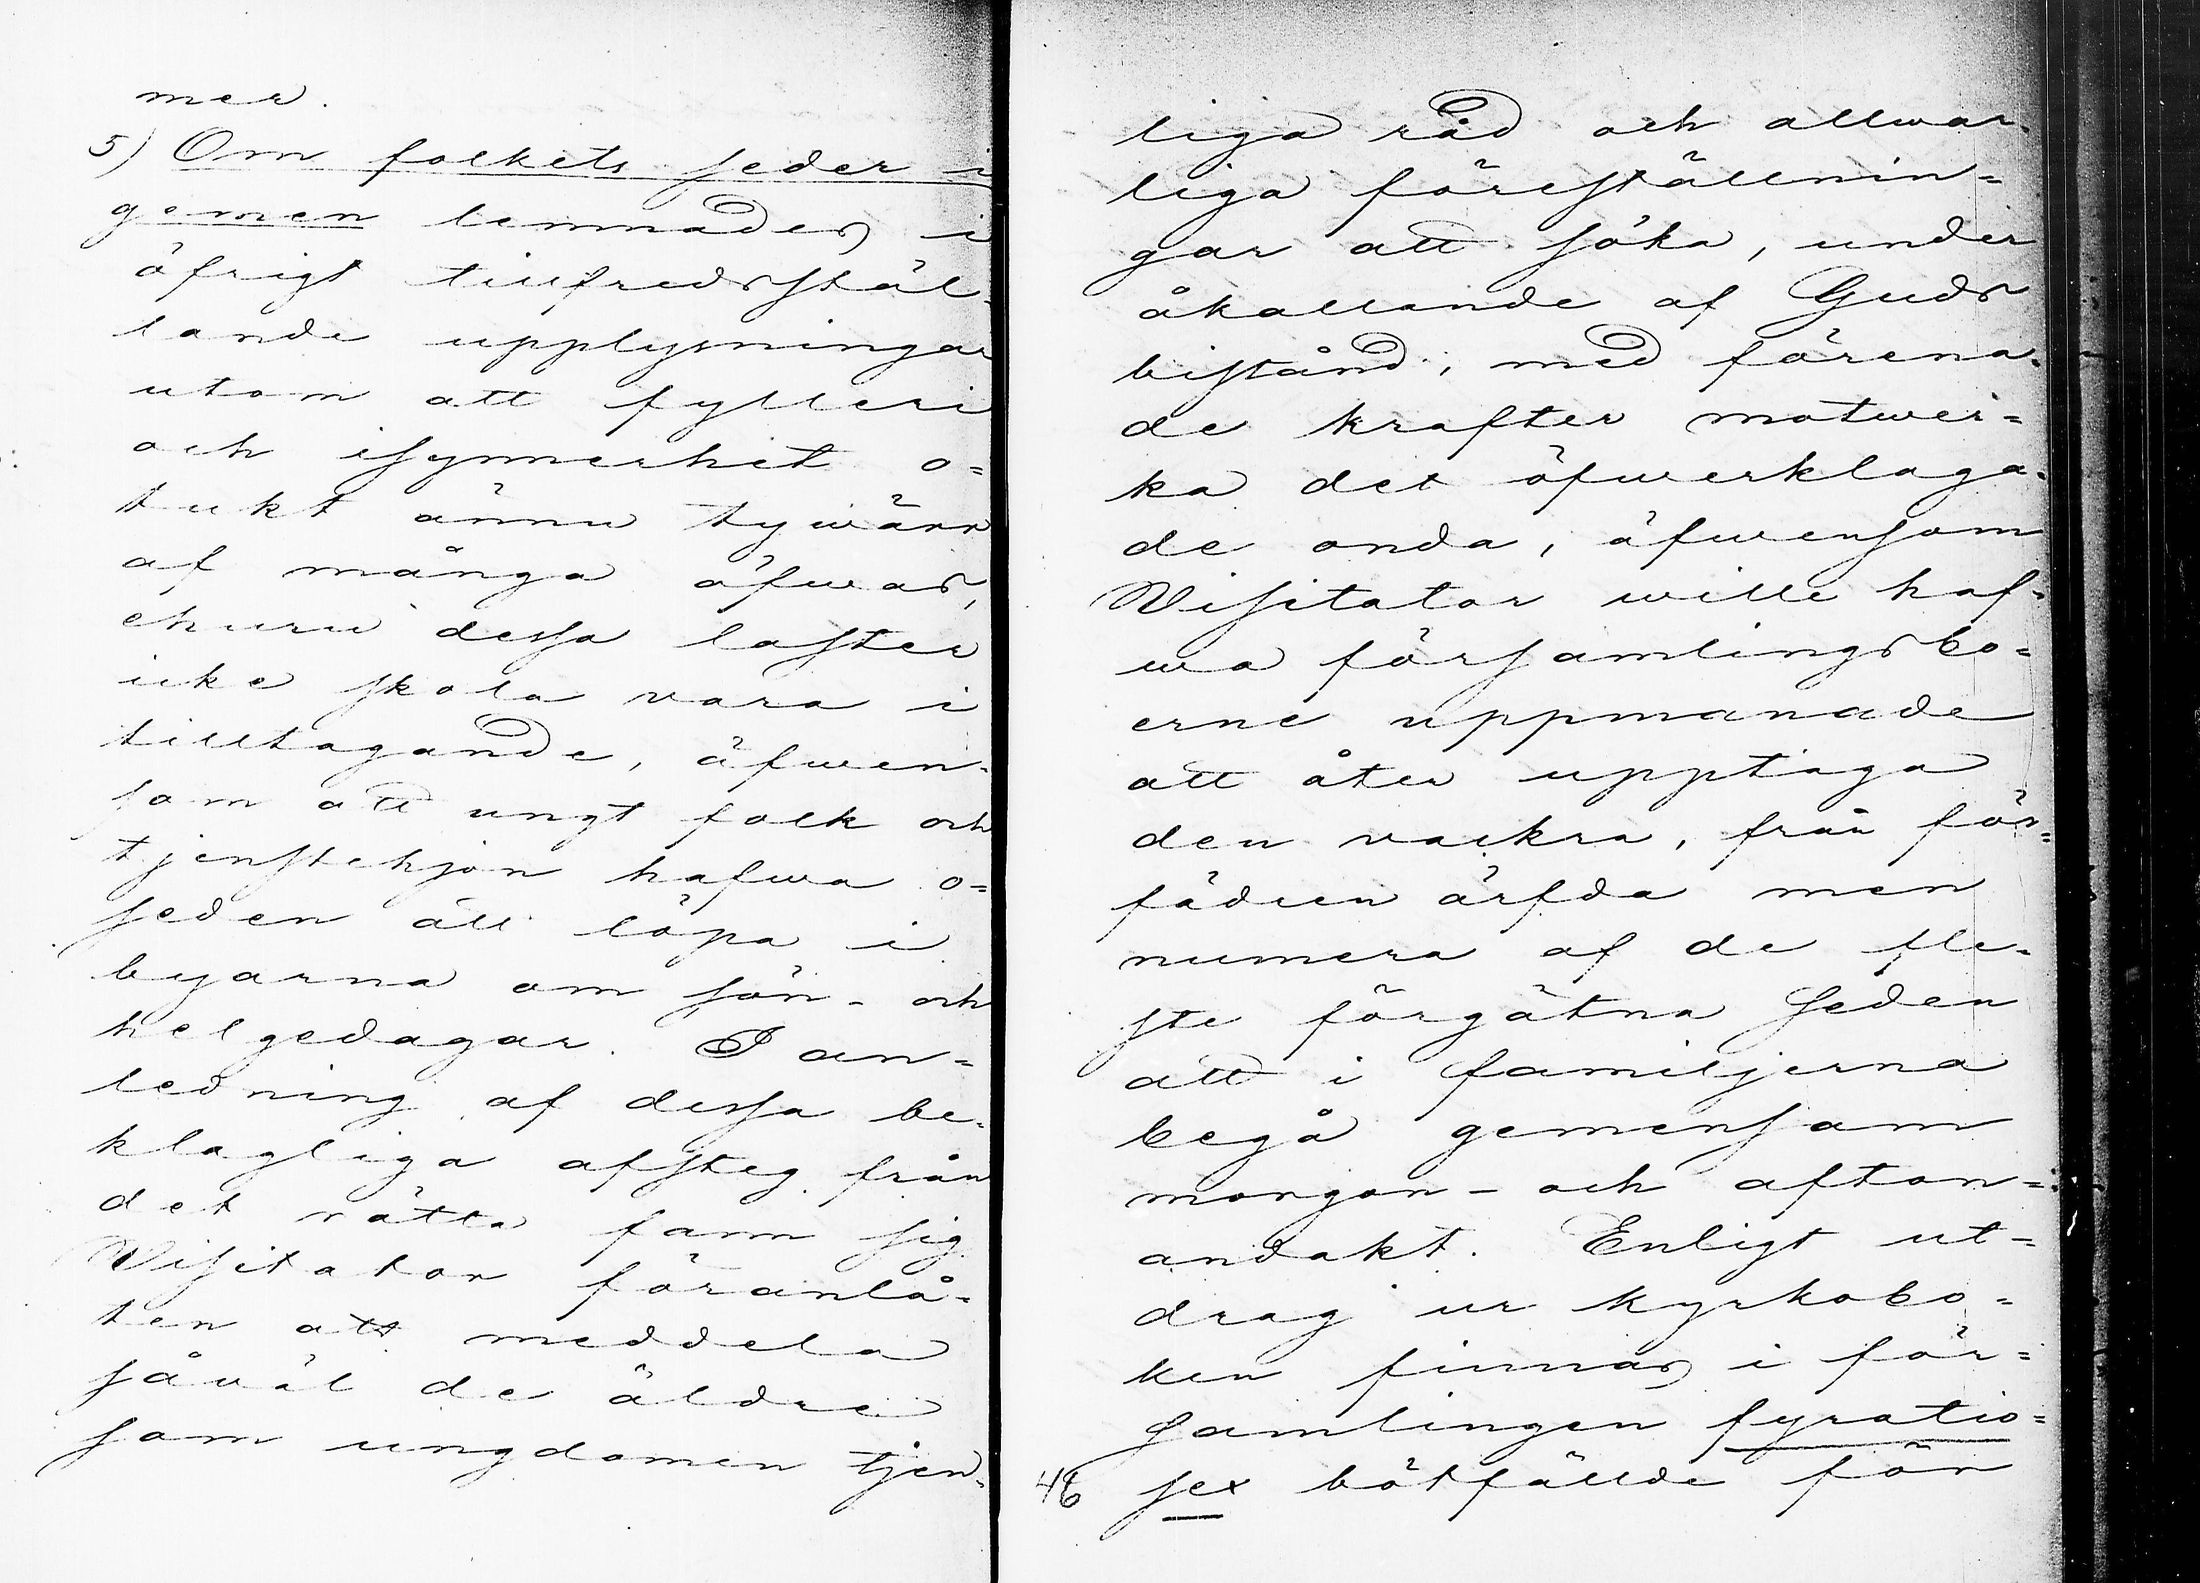 mer.
5) Om folkets seder i
gemen lemnades i
öfrigt tillfredsstäl-
lande upplysningar
utom att fylleri
och isynnerhet o=
tukt ännu tywärr
af många öfwas,
ehuru dessa laster
icke skola vara i
tilltagande, äfwen-
som att ungt folk och
tjenstehjon hafwa o=
seden att löpa i
byarna om sön- och
helgedagar. I an=
ledning af dessa be-
klagliga afsteg från
det rätta fann sig
Visitator föranlå=
ten att meddela
såväl de äldre
som ungdomen tjen-
liga råd och allwar-
liga föreställnin=
gar att söka, under
åkallande af Guds
bistånd, med förena-
de krafter motwer=
ka det öfwerklaga-
de onda, äfwensom
Visitator wille haf-
wa församlingsbo=
erne uppmanade
att åter upptaga
den vackra, från för=
fädren ärfda men
numera af de fle-
ste förgätna seden
att i familjerna
begå gemensam
morgon- och afton=
andakt. Enligt ut-
drag ur kyrkobo=
ken finnas i för=
samlingen fyratio=
46 sex bötfällde för